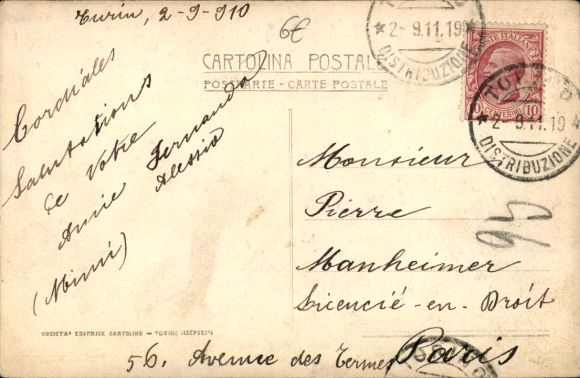 Turin, 2-9-910
6€
CARTOLINA POSTALE
POSTKARTE - CARTE POSTALE
Cordiales
Salutations
de Votre
Amie Fernanda
Alessio
(Mimi)
2-9.11.19
DISTRIBUZIONE
POSTE ITALIANE
CENTESIMI 10
TORINO
2-9.11.19
DISTRIBUZIONE
Monsieur
Pierre
Manheimer
Licencié-en-Droit
Paris
56, Avenue des Termes
SOCIETÀ EDITRICE CARTOLINE - TORINO (DEPOSÉ)